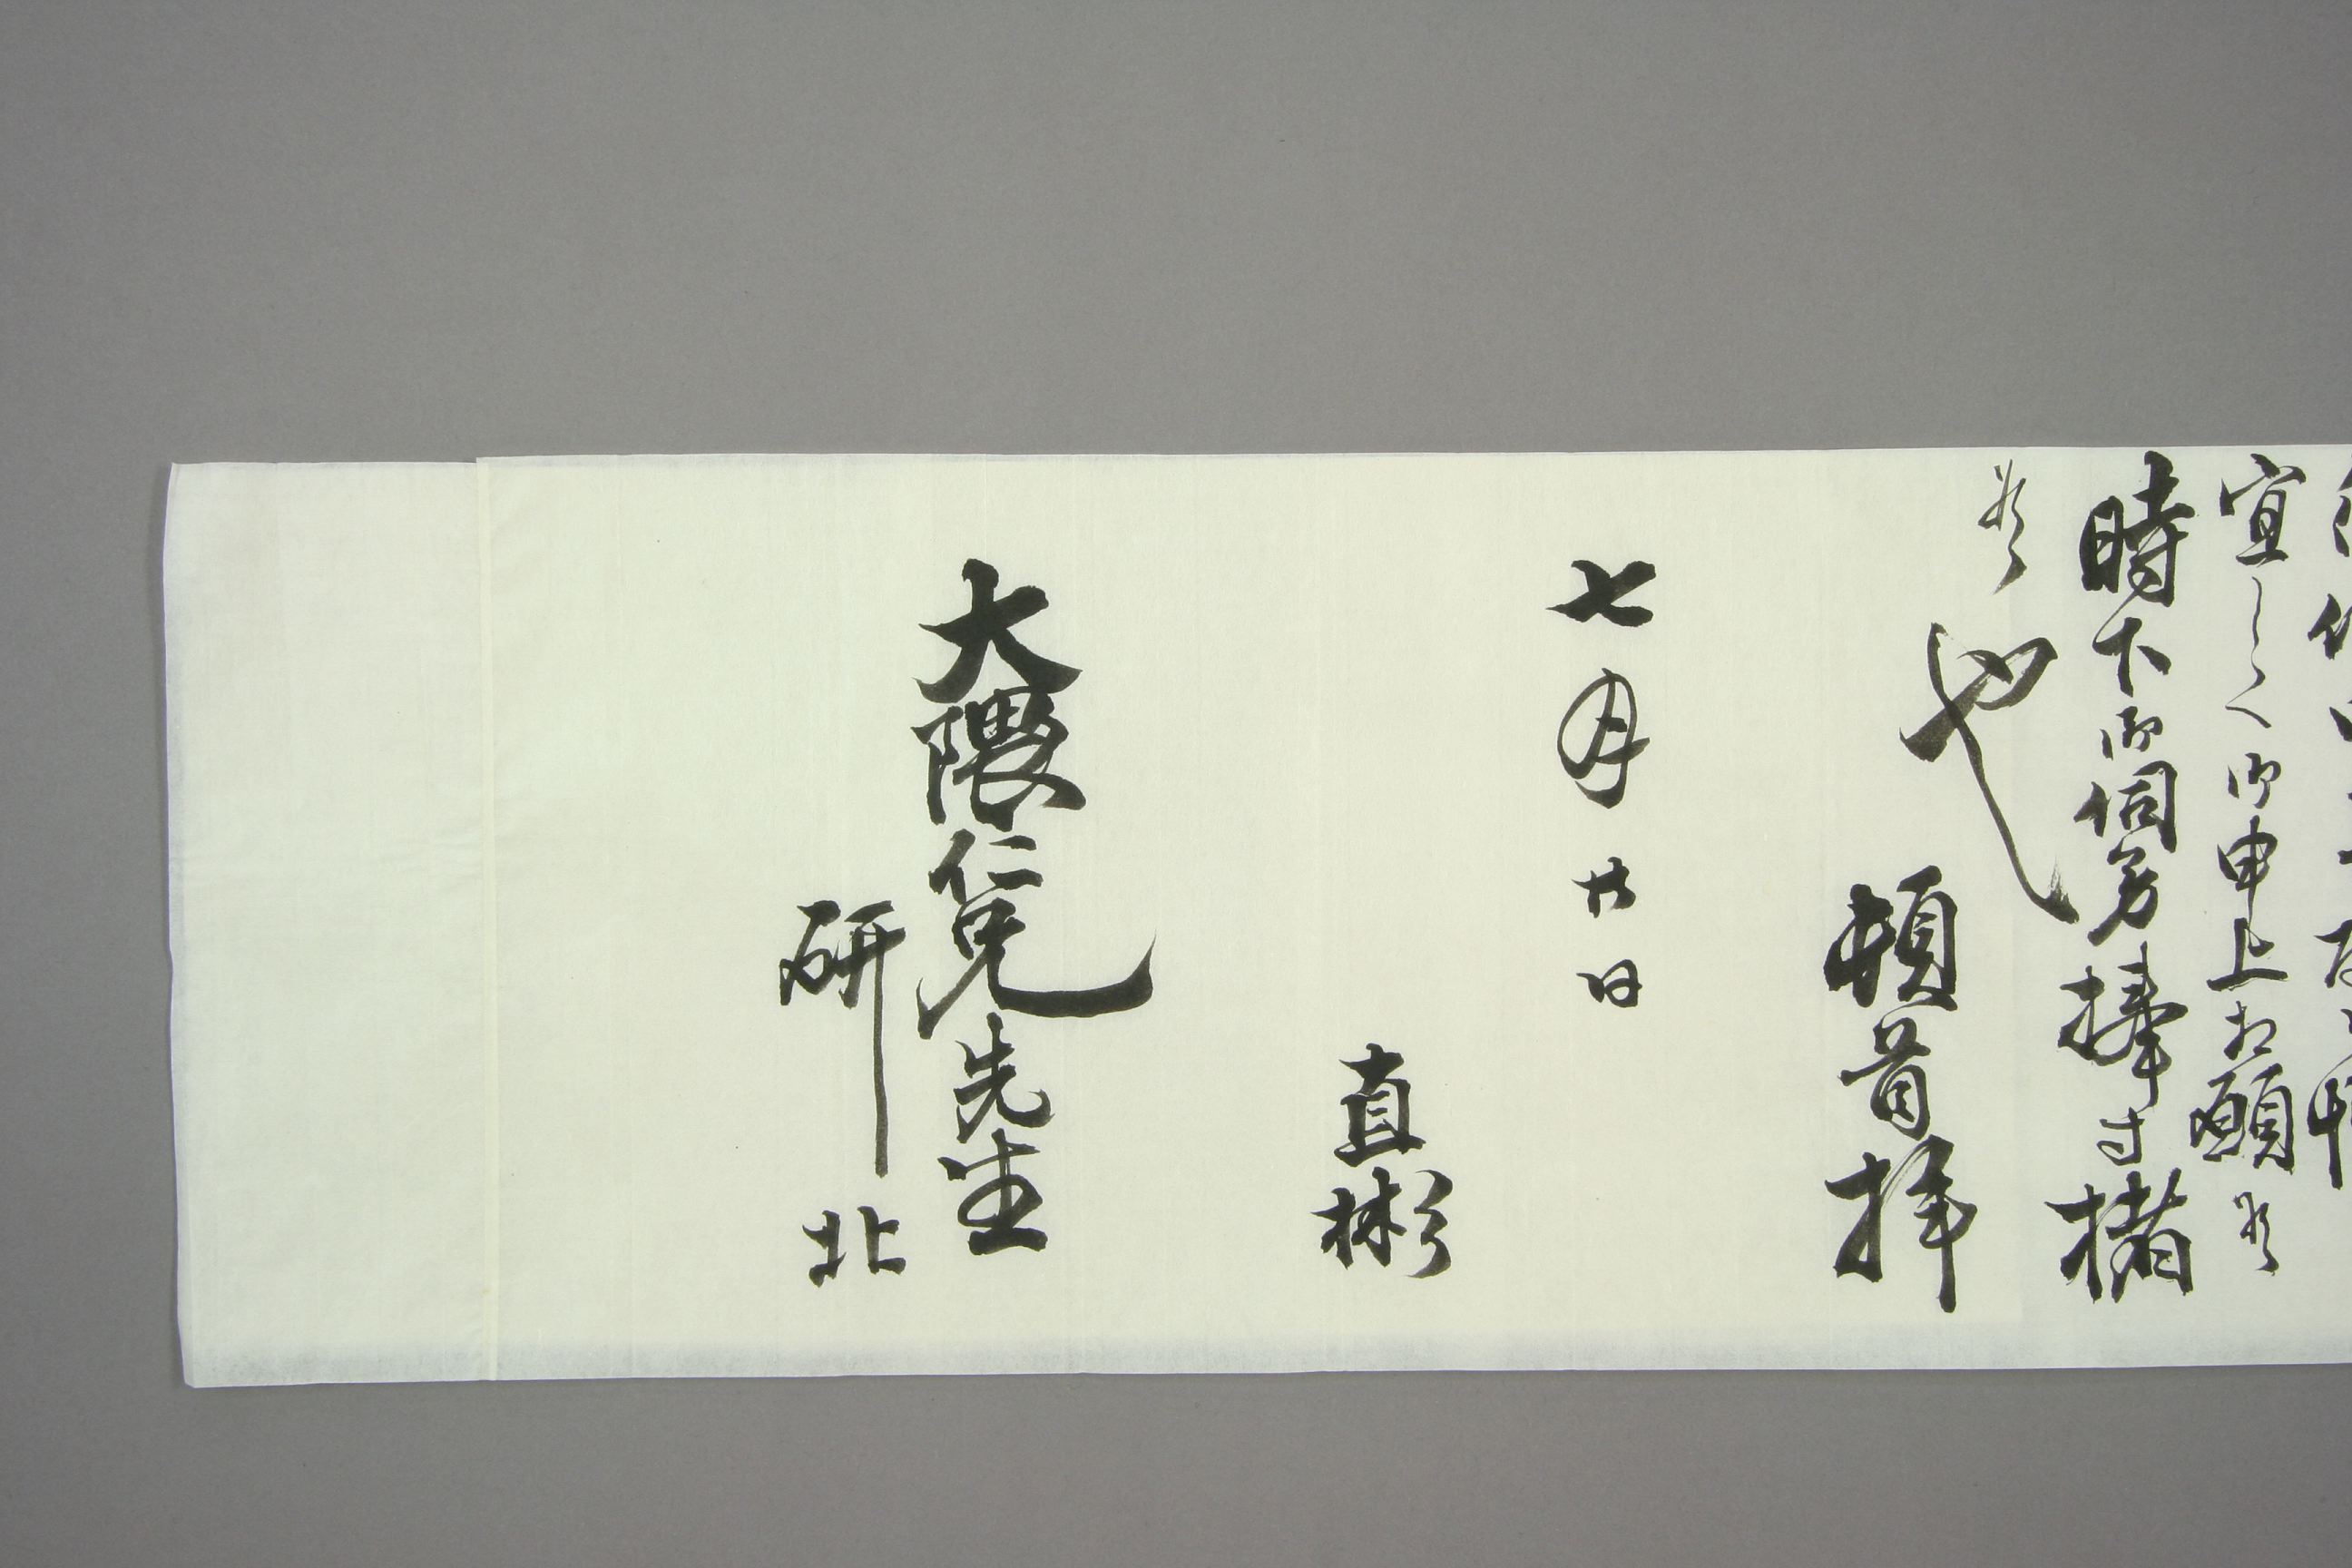 宜しく御申上相願候
時下御伺旁捧寸楮
候也
頓首拝
七月廿日
直彬
大隈仁兄先生
研北